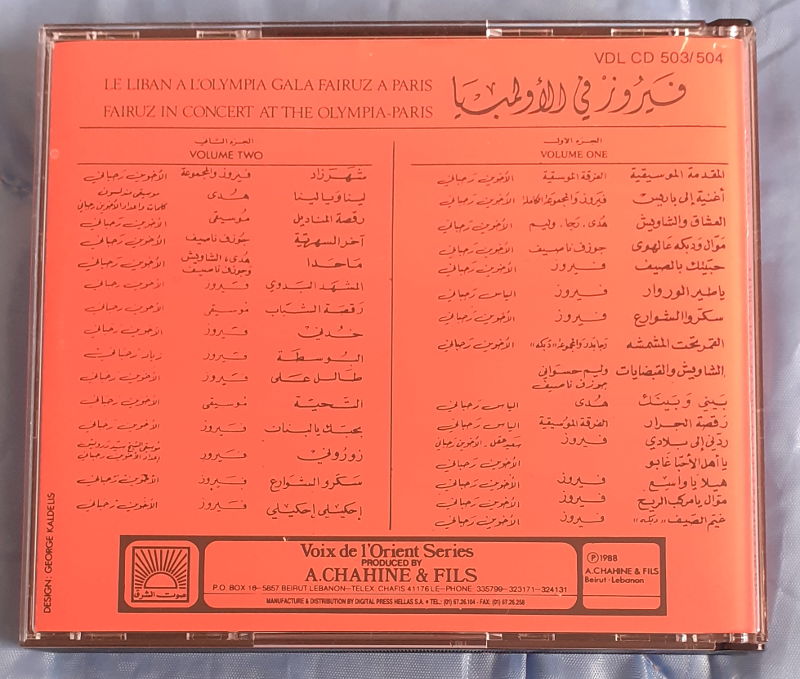 VDL CD 503/504
LE LIBAN A L'OLYMPIA GALA FAIRUZ A PARIS
FAIRUZ IN CONCERT AT THE OLYMPIA-PARIS
فيروز في الأولمبيا
الجزء الأول
VOLUME ONE
المقدمة الموسيقية الفرقة الموسيقية الأخوين رحباني
أغنية إلى باريس فيروز والمجموعة الكاملة الأخوين رحباني
العشاق والشاويش هدى، رجا، وليم الأخوين رحباني
موال ودبكه عالهوى جوزف ناصيف الأخوين رحباني
حبيتك بالصيف فيروز الأخوين رحباني
ياطير الوروار فيروز الياس رحباني
سكروا الشوارع فيروز الأخوين رحباني
القمر بتحت المشمشه والمجموعة «دبكه» الأخوين رحباني
الشاويش والقبضايات وليم حسواني
جوزف ناصيف
بيني وبينك هدى الياس رحباني
رقصة الجرار الفرقة الموسيقية الأخوين رحباني
ردني إلى بلادي فيروز سعيد عقل - الأخوين رحباني
يا أهل الأحبا غابو الأخوين رحباني
هيلا يا واسع فيروز الأخوين رحباني
موال يا مركب الريح فيروز الأخوين رحباني
غيم الصيف «دبكه» فيروز الأخوين رحباني
الجزء الثاني
VOLUME TWO
شهرزاد فيروز والمجموعة الأخوين رحباني
لينا ويا لينا هدى موسيقى
كلمات واعداد الأخوين رحباني
رقصة المناديل موسيقى الأخوين رحباني
آخر السهرية جوزف ناصيف الأخوين رحباني
ما حدا هدى، الشاويش
وجوزف ناصيف الأخوين رحباني
المشهد البدوي فيروز الأخوين رحباني
رقصة الشباب موسيقى الأخوين رحباني
خدني فيروز الأخوين رحباني
البوسطة فيروز زياد رحباني
طال علي فيروز الأخوين رحباني
التحية موسيقى الأخوين رحباني
بحبك يا لبنان فيروز الأخوين رحباني
زوروني فيروز موسيقى الشيخ سيد درويش
إعداد الأخوين رحباني
سكروا الشوارع فيروز الأخوين رحباني
إحكيلي إحكيلي فيروز الأخوين رحباني
DESIGN: GEORGE KALDELIS
صوت الشرق
Voix de l'Orient Series
PRODUCED BY
A.CHAHINE & FILS
P.O. BOX 16-5857 BEIRUT LEBANON-TELEX CHAFIS 41176 LE-PHONE: 335799-323171-324131
MANUFACTURE & DISTRIBUTION BY DIGITAL PRESS HELLAS S.A. • TEL.: (01) 67.26.104 - FAX: (01) 67.26.258
Ⓟ 1988
A.CHAHINE & FILS
Beirut-Lebanon